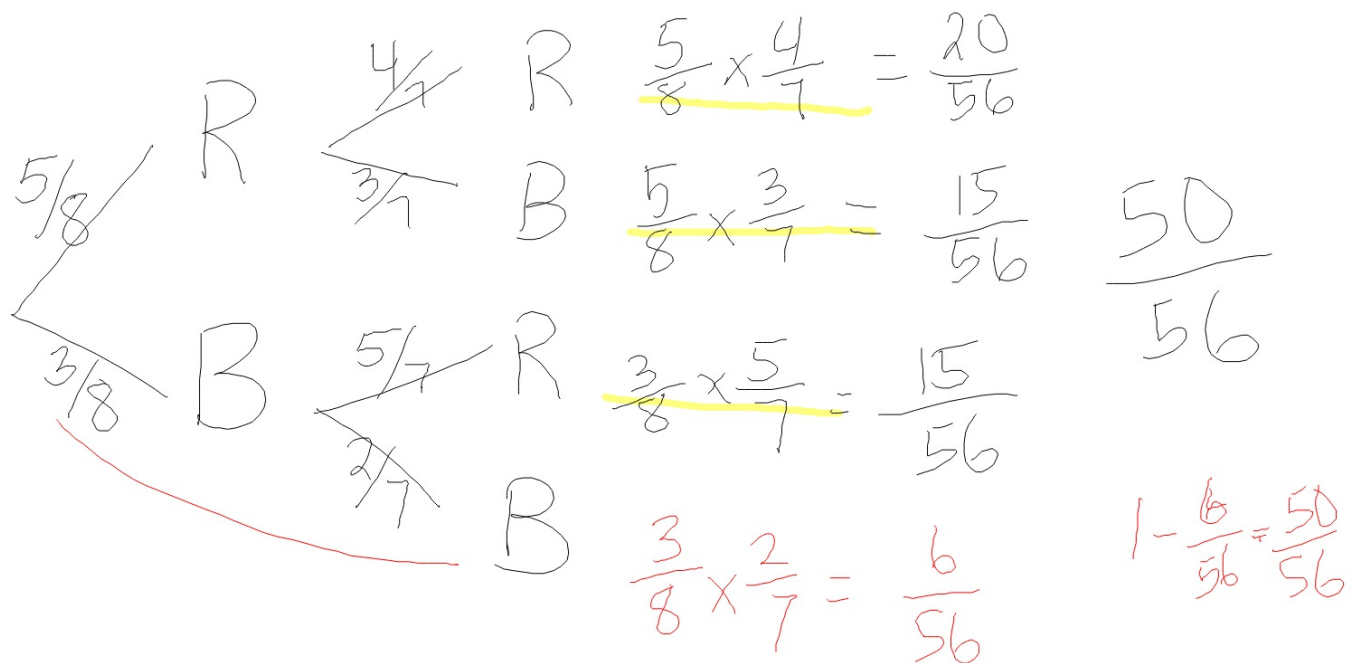 4/7 R 5/8 × 4/7 = 20/56
5/8 R
3/7 B 5/8 × 3/7 = 15/56
50/56
3/8 B
5/7 R 3/8 × 5/7 = 15/56
2/7 B 3/8 × 2/7 = 6/56
1 - 6/56 = 50/56